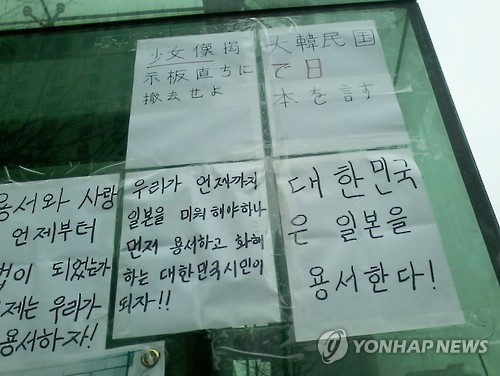 少女像掲
示板直ちに
撤去せよ
大韓民国
で日
本を許す
용서와 사랑
언제부터
법이 되었는가
이제는 우리가
용서하자!
우리가 언제까지
일본을 미워해야하나
먼저 용서하고 화해
하는 대한민국시민이
되자!!
대한민국
은 일본을
용서한다!
YONHAP NEWS